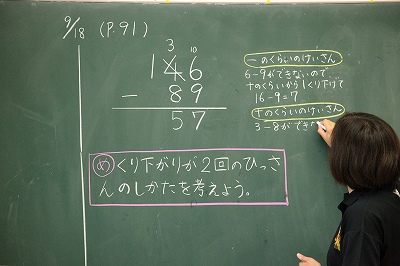 9/18 (P.91)
3 10
146
- 89
57
一のくらいのけいさん
6-9ができないので
十のくらいから1くり下げて
16-9=7
十のくらいのけいさん
3-8ができ
め くり下がりが2回のひっさ
んのしかたを考えよう。